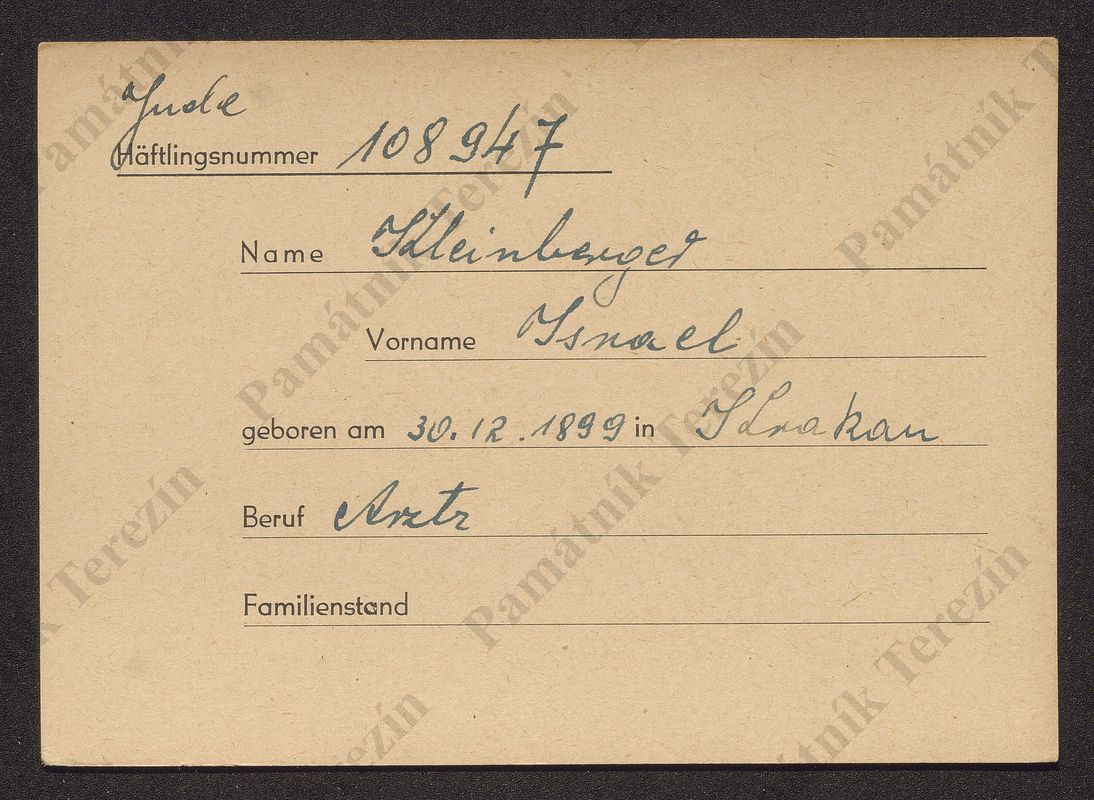 Jude
Häftlingsnummer 108947
Name Kleinberger
Vorname Israel
geboren am 30.12.1899 in Krakau
Beruf Arzt
Familienstand
Památník Terezín